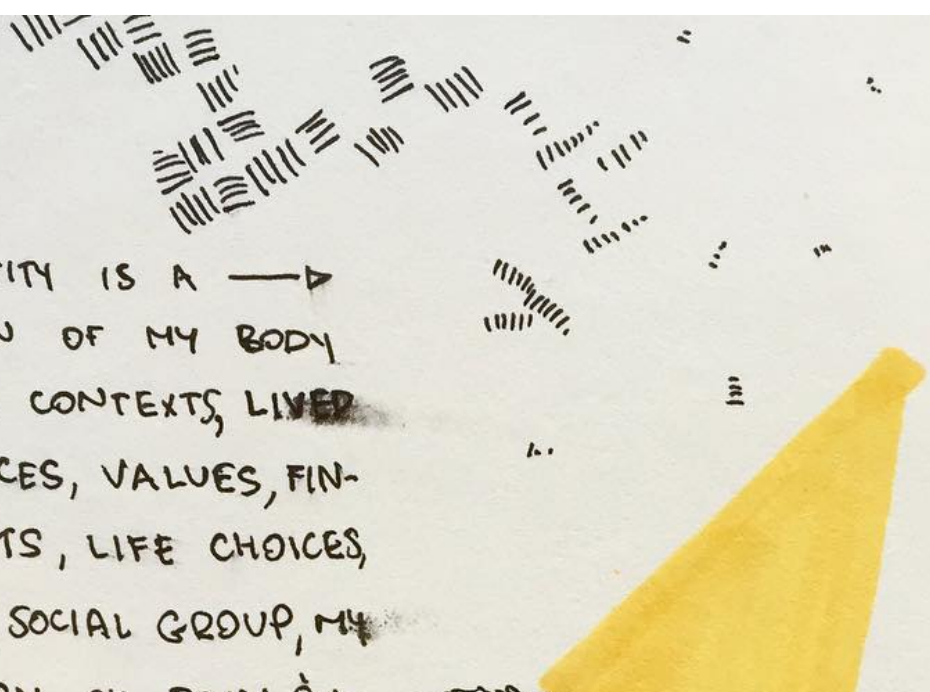 ITY IS A
OF MY BODY
CONTEXTS, LIVED
CES, VALUES, FIN-
TS, LIFE CHOICES,
SOCIAL GROUP, MY